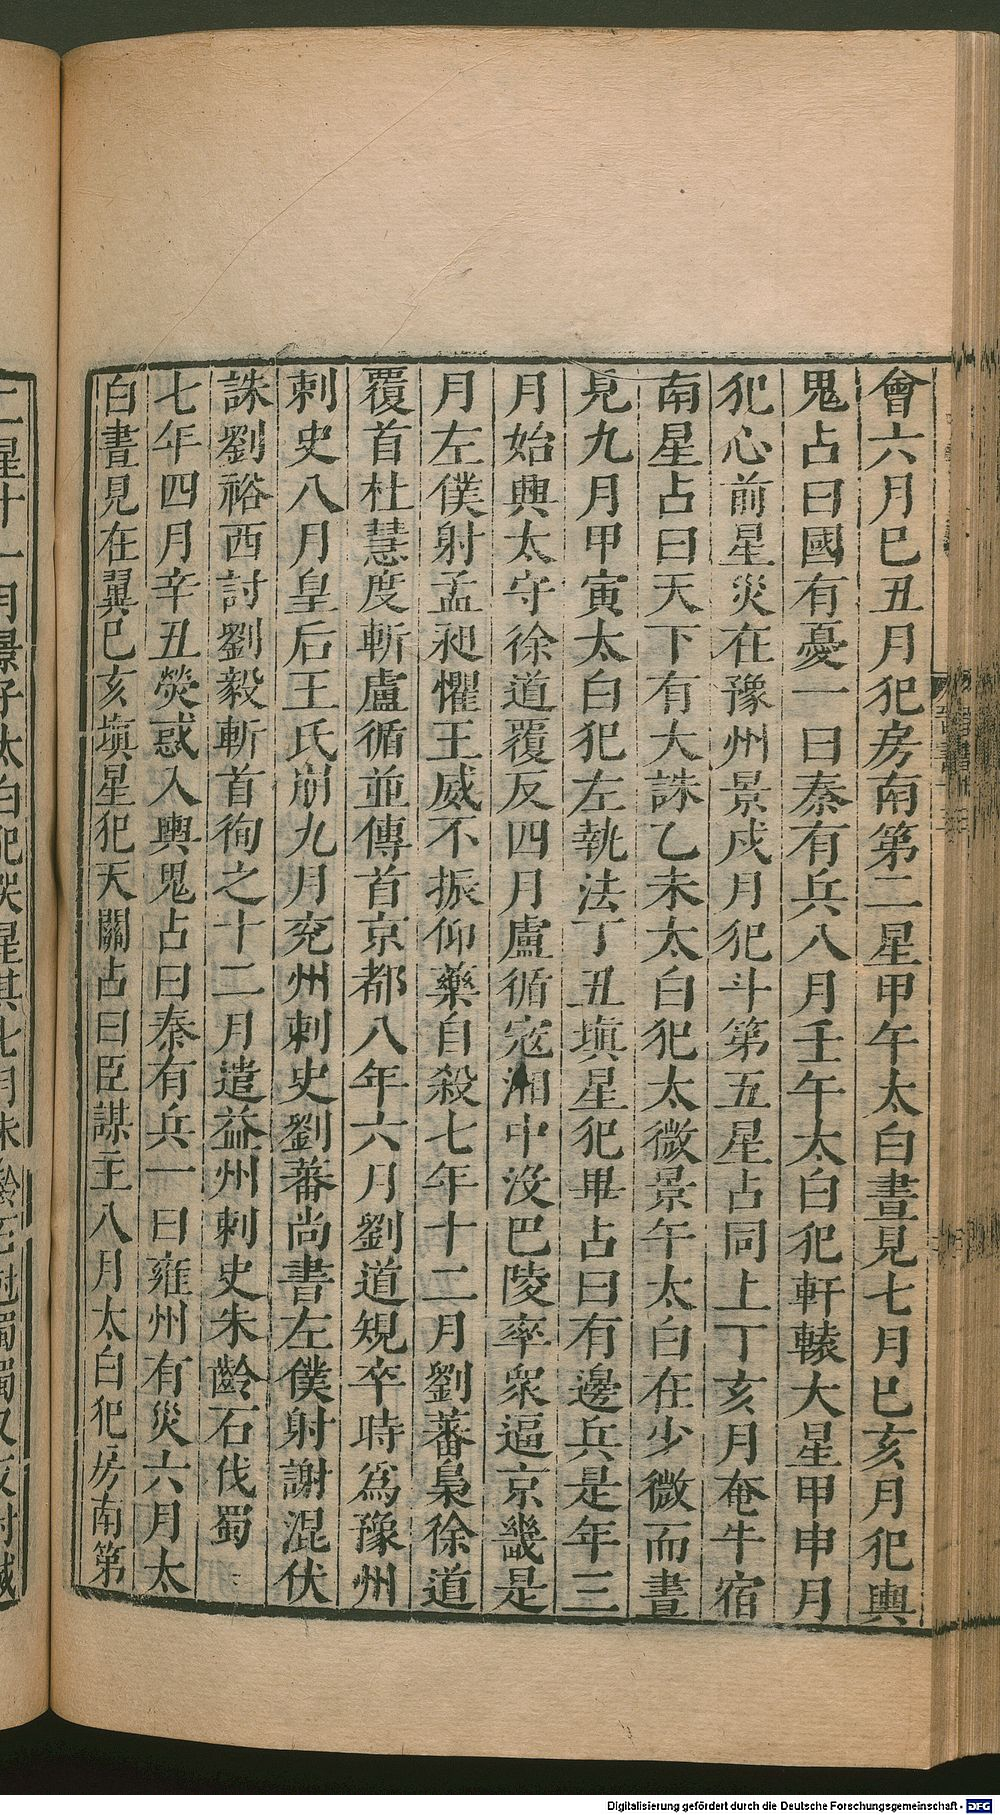 會六月巳丑月犯房南第二星甲午太白晝見七月巳亥月犯輿
鬼占曰國有憂一曰秦有兵八月壬午太白犯軒轅大星甲申月
犯心前星災在豫州景戌月犯斗第五星占同上丁亥月奄牛宿
南星占曰天下有大誅乙未太白犯太微景午太白在少微而晝
見九月甲寅太白犯左執法丁丑塡星犯畢占曰有邊兵是年三
月始興太守徐道覆反四月盧循寇湘中沒巴陵率衆逼京畿是
月左僕射孟昶懼王威不振仰藥自殺七年十二月劉蕃梟徐道
覆首杜慧度斬盧循並傳首京都八年六月劉道規卒時爲豫州
刺史八月皇后王氏崩九月兖州刺史劉蕃尚書左僕射謝混伏
誅劉裕西討劉毅斬首徇之十二月遣益州刺史朱齡石伐蜀
七年四月辛丑熒惑入輿鬼占曰秦有兵一曰雍州有災六月太
白晝見在翼巳亥塡星犯天關占曰臣謀主八月太白犯房南第
Digitalisierung gefördert durch die Deutsche Forschungsgemeinschaft - DFG